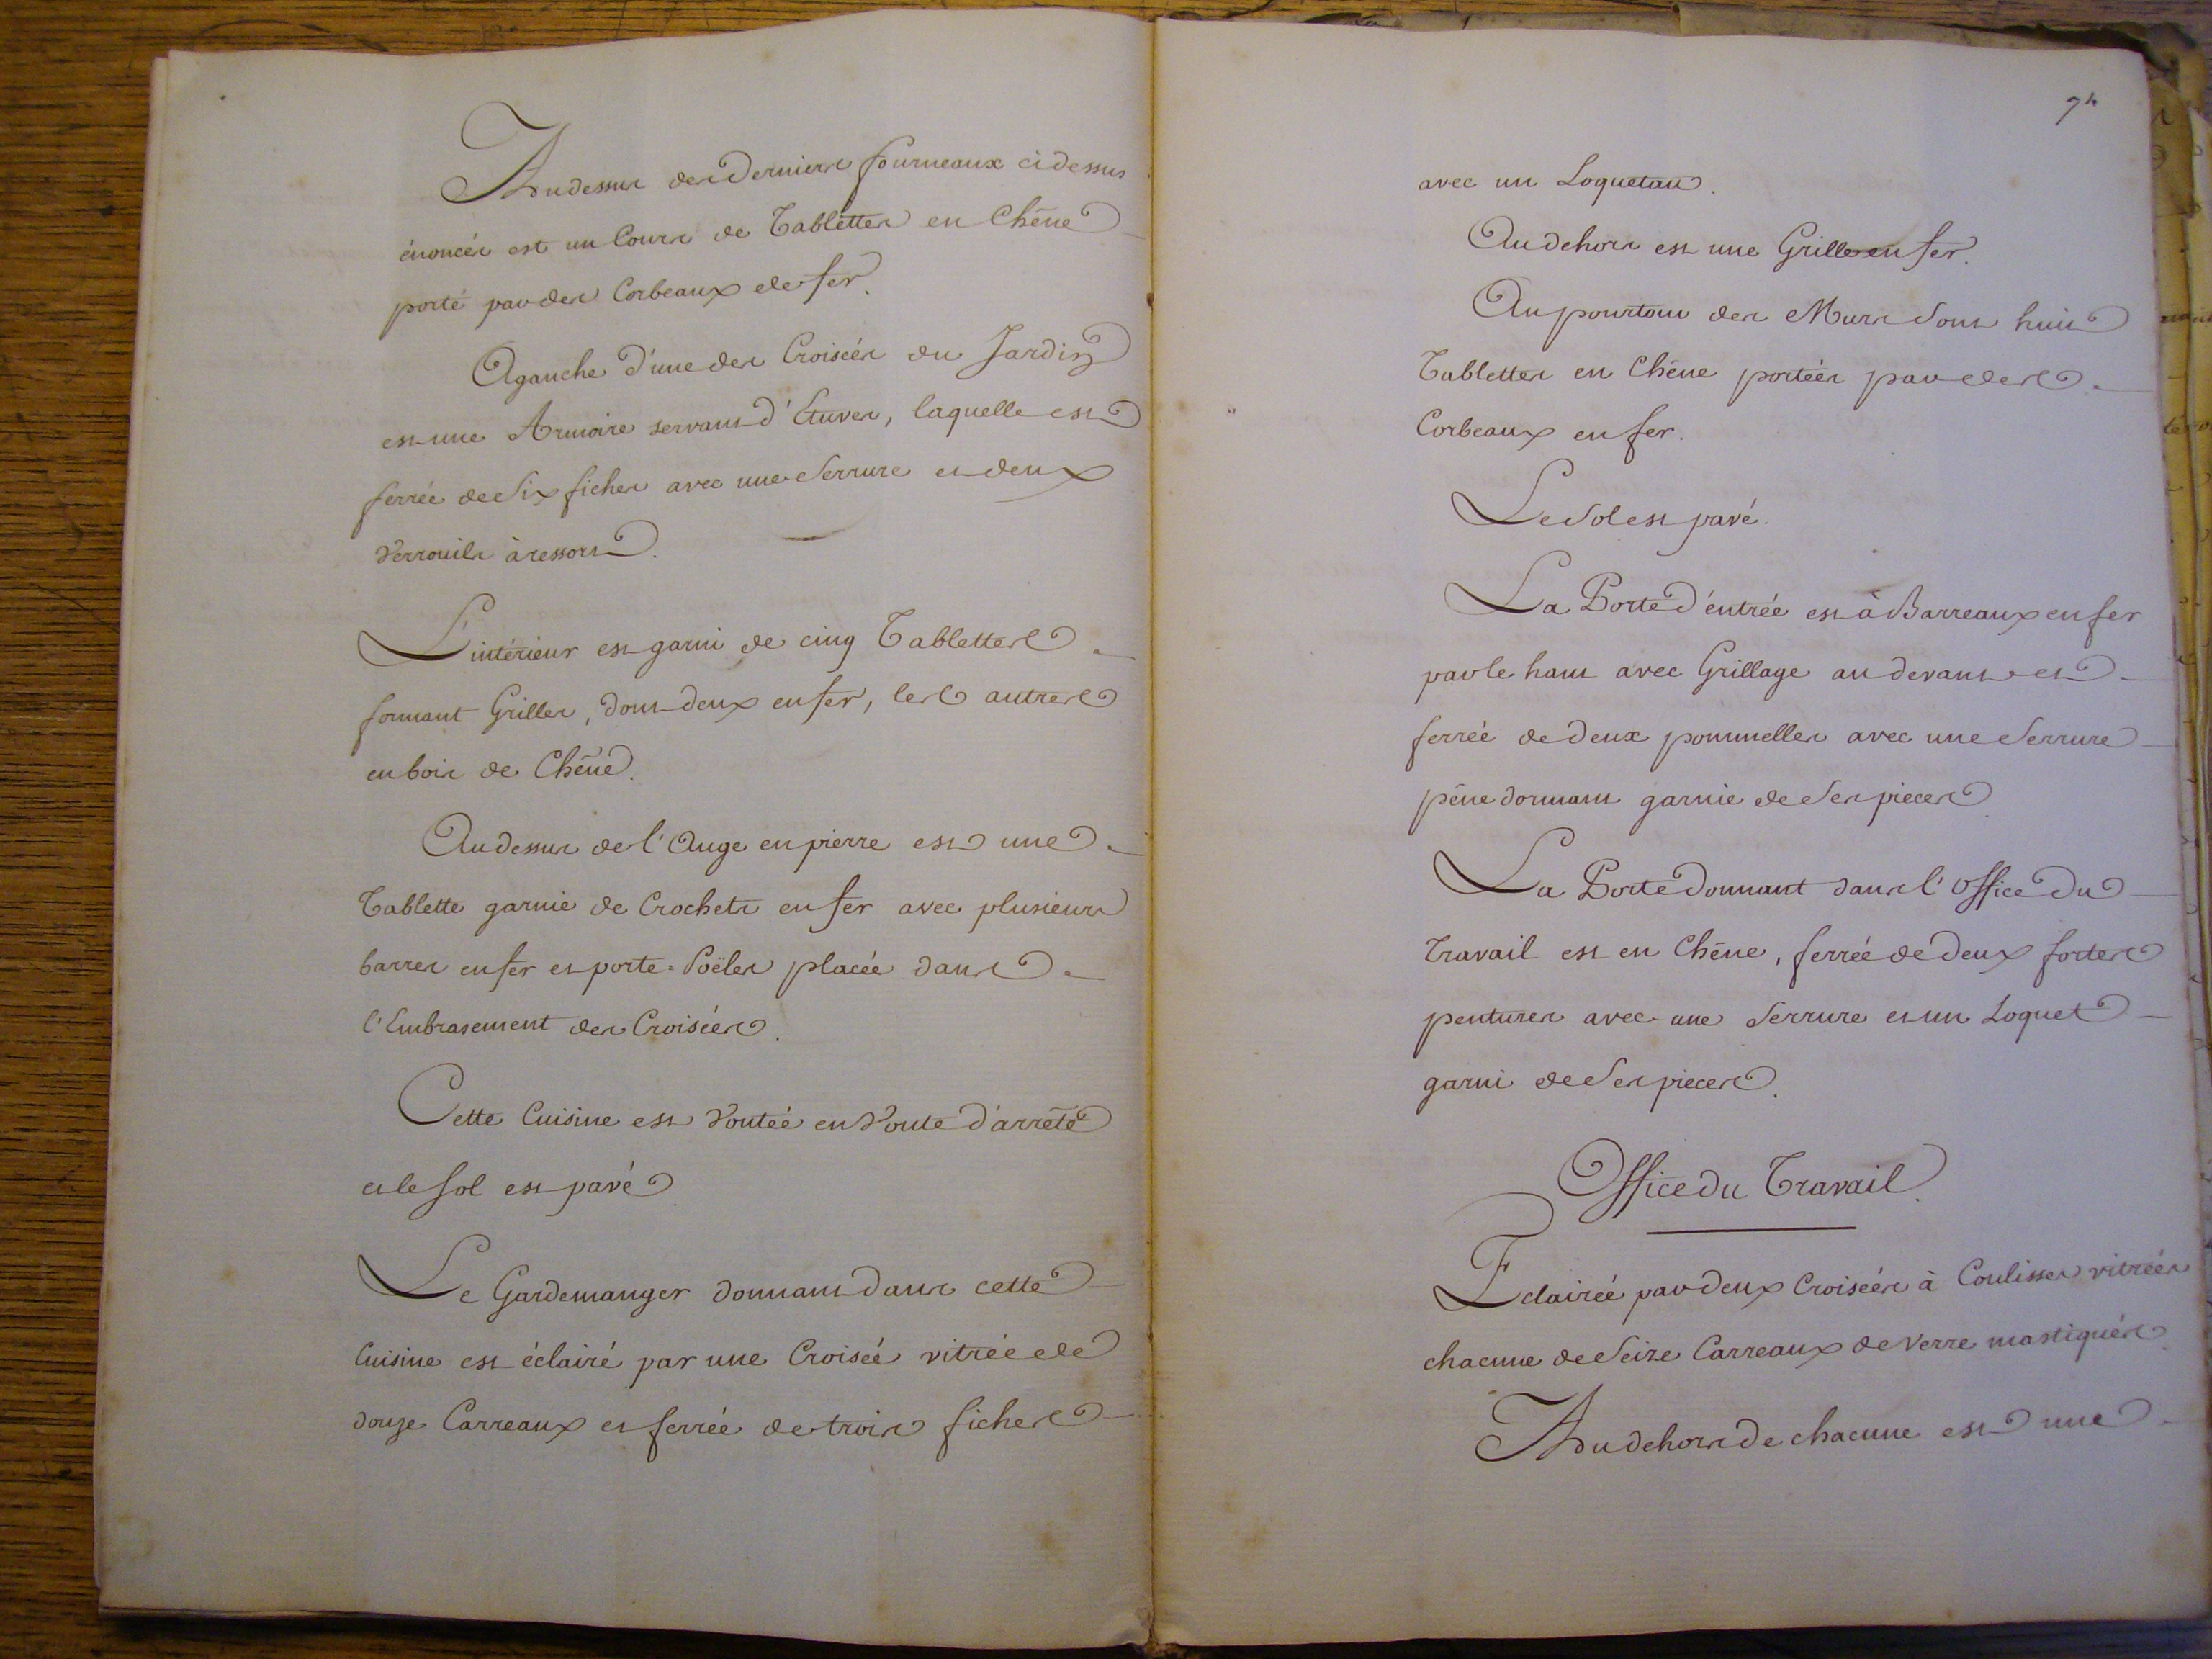 Audessus des derniers fourneaux cidessus
énoncés est un Cours de Tablettes en Chêne
porté par des Corbeaux de fer.
Agauche d'une des Croisées du Jardin
est une Armoire servant d'Etuves, laquelle est
ferrée de Six fiches avec une Serrure et deux
Verrouils à ressort.
L'intérieur est garni de cinq Tablettes
formant Grilles, dont deux en fer, les autres
en bois de Chêne.
Audessus de l'Auge en pierre est une
Tablette garnie de Crochets en fer avec plusieurs
barres en fer et porte=Poëles placée dans
l'Embrasement des Croisées.
Cette Cuisine est Voutée en Voute d'arrête
et le Sol est pavé
Le Gardemanger donnant dans cette
Cuisine est éclairé par une Croisée vitrée de
douze Carreaux et ferrée de trois fiches
avec un Loqueteau.
Au dehors est une Grille en fer.
Au pourtour des Murs Sont huit
Tablettes en Chêne portées par des
Corbeaux en fer.
Le Sol est pavé.
La Porte d'entrée est à Barreaux en fer
par le haut avec Grillage au devant et
ferrée de deux pommelles avec une Serrure
pêne dormant garnie de Ses pieces.
La Porte donnant dans l'Office du
Travail est en Chêne, ferrée de deux fortes
pentures avec une Serrure et un Loquet
garni de Ses pieces.
Office du Travail.
Eclairée par deux Croisées à Coulisses vitrées
chacune de Seize Carreaux de Verre mastiqués.
Au dehors de chacune est une